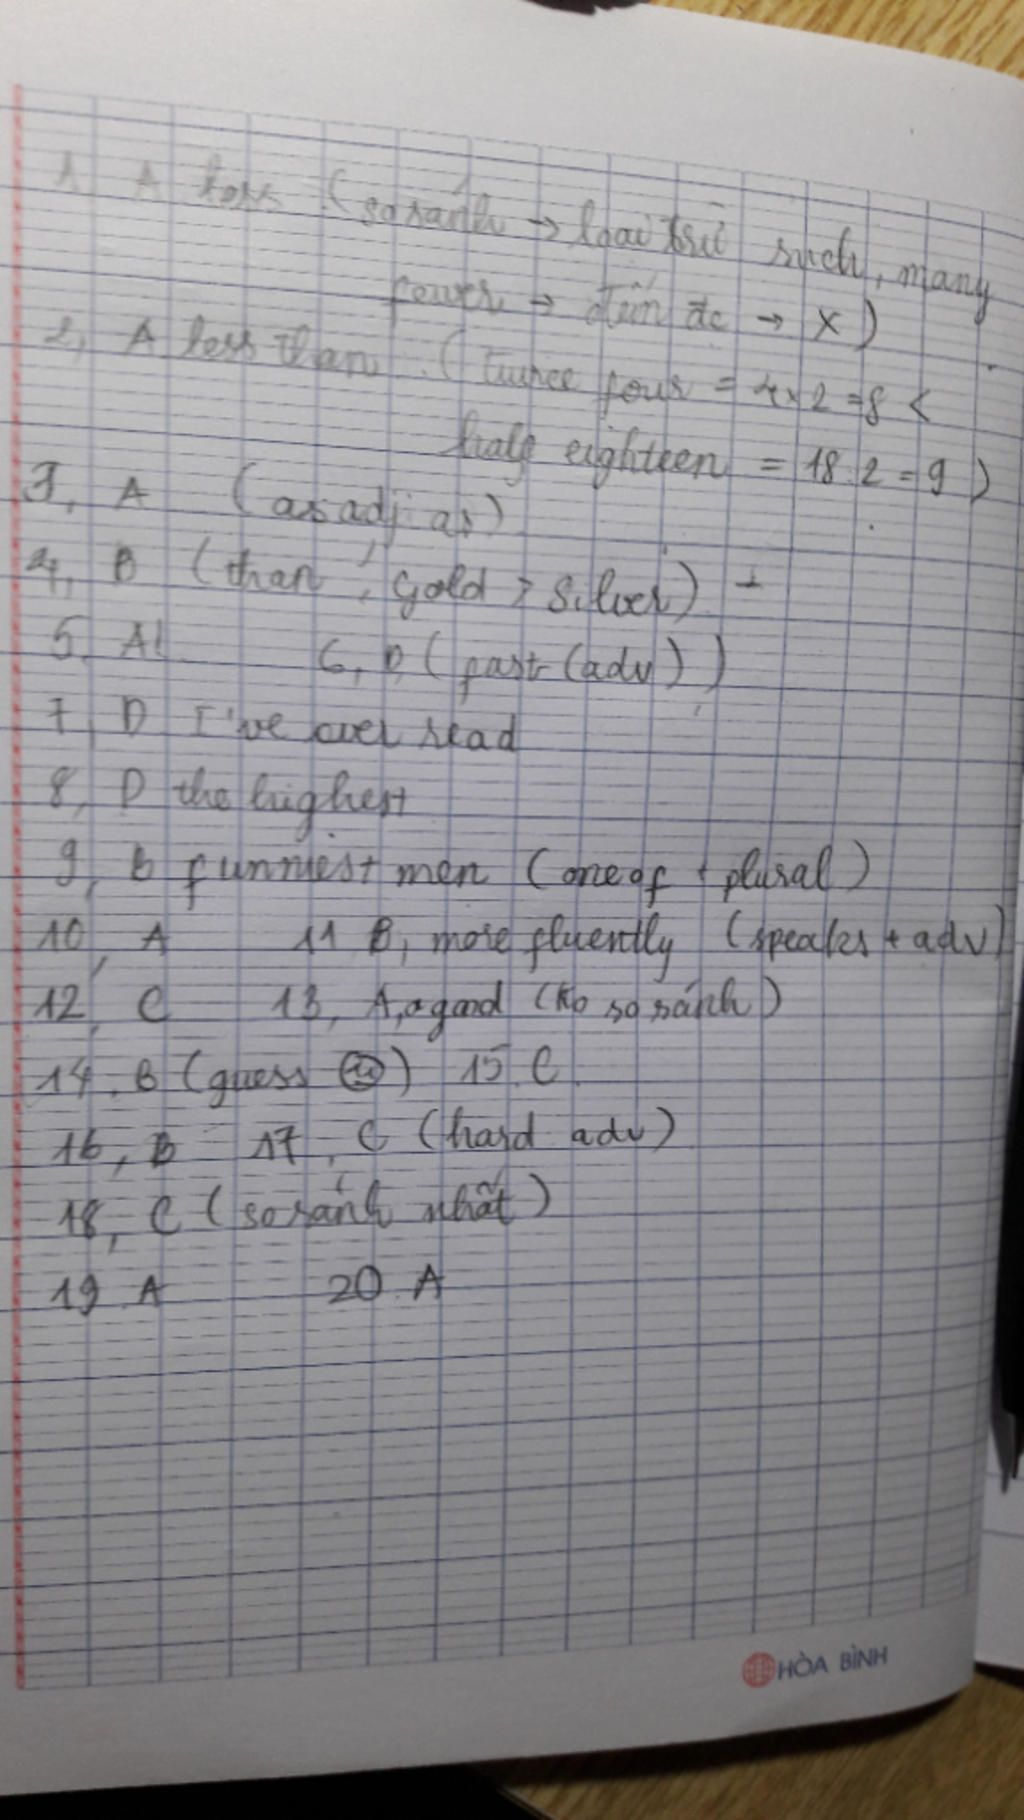 1. A less (so sánh → loại trừ such, many
fewer → đếm đc → X)
2, A less than. (twice four = 4 x 2 = 8 <
half eighteen = 18:2 = 9)
3, A (as adj as)
4, B (than, gold > silver)
5, A 6, D (fast (adv))
7, D I've ever read
8, D the highest
9, B funniest men (one of + plural)
10, A 11 B, more fluently (speaks + adv)
12, C 13, A, a good (ko so sánh)
14. B (guess) 15. C
16, B 17, C (hard adv)
18, C (so sánh nhất)
19 A 20 A
HÒA BÌNH